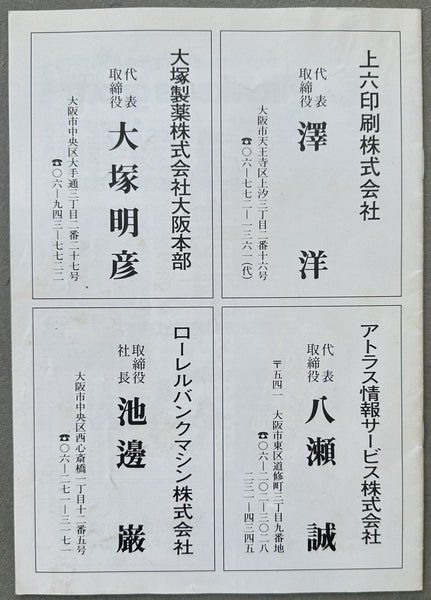 上六印刷株式会社
代表
取締役
澤洋
大阪市天王寺区上汐三丁目二番十六号
☎〇六―七七二―一三六一(代)
大塚製薬株式会社大阪本部
代表
取締役
大塚明彦
大阪市中央区大手通三丁目二番二十七号
☎〇六―九四三―七七二二
アトラス情報サービス株式会社
代表
取締役
八瀬誠
〒五四一 大阪市東区道修町三丁目九番地
☎〇六―二〇二―三〇二八
二三一―四三四五
ローレルバンクマシン株式会社
取締役
社長
池邊巌
大阪市中央区西心斎橋一丁目十二番五号
☎〇六―二七一―三一七一